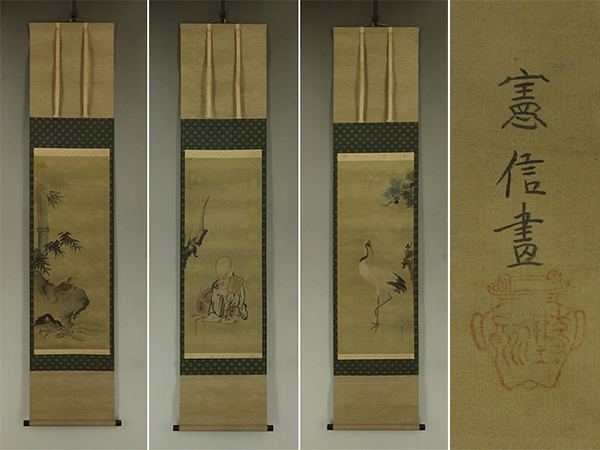 憲信畫